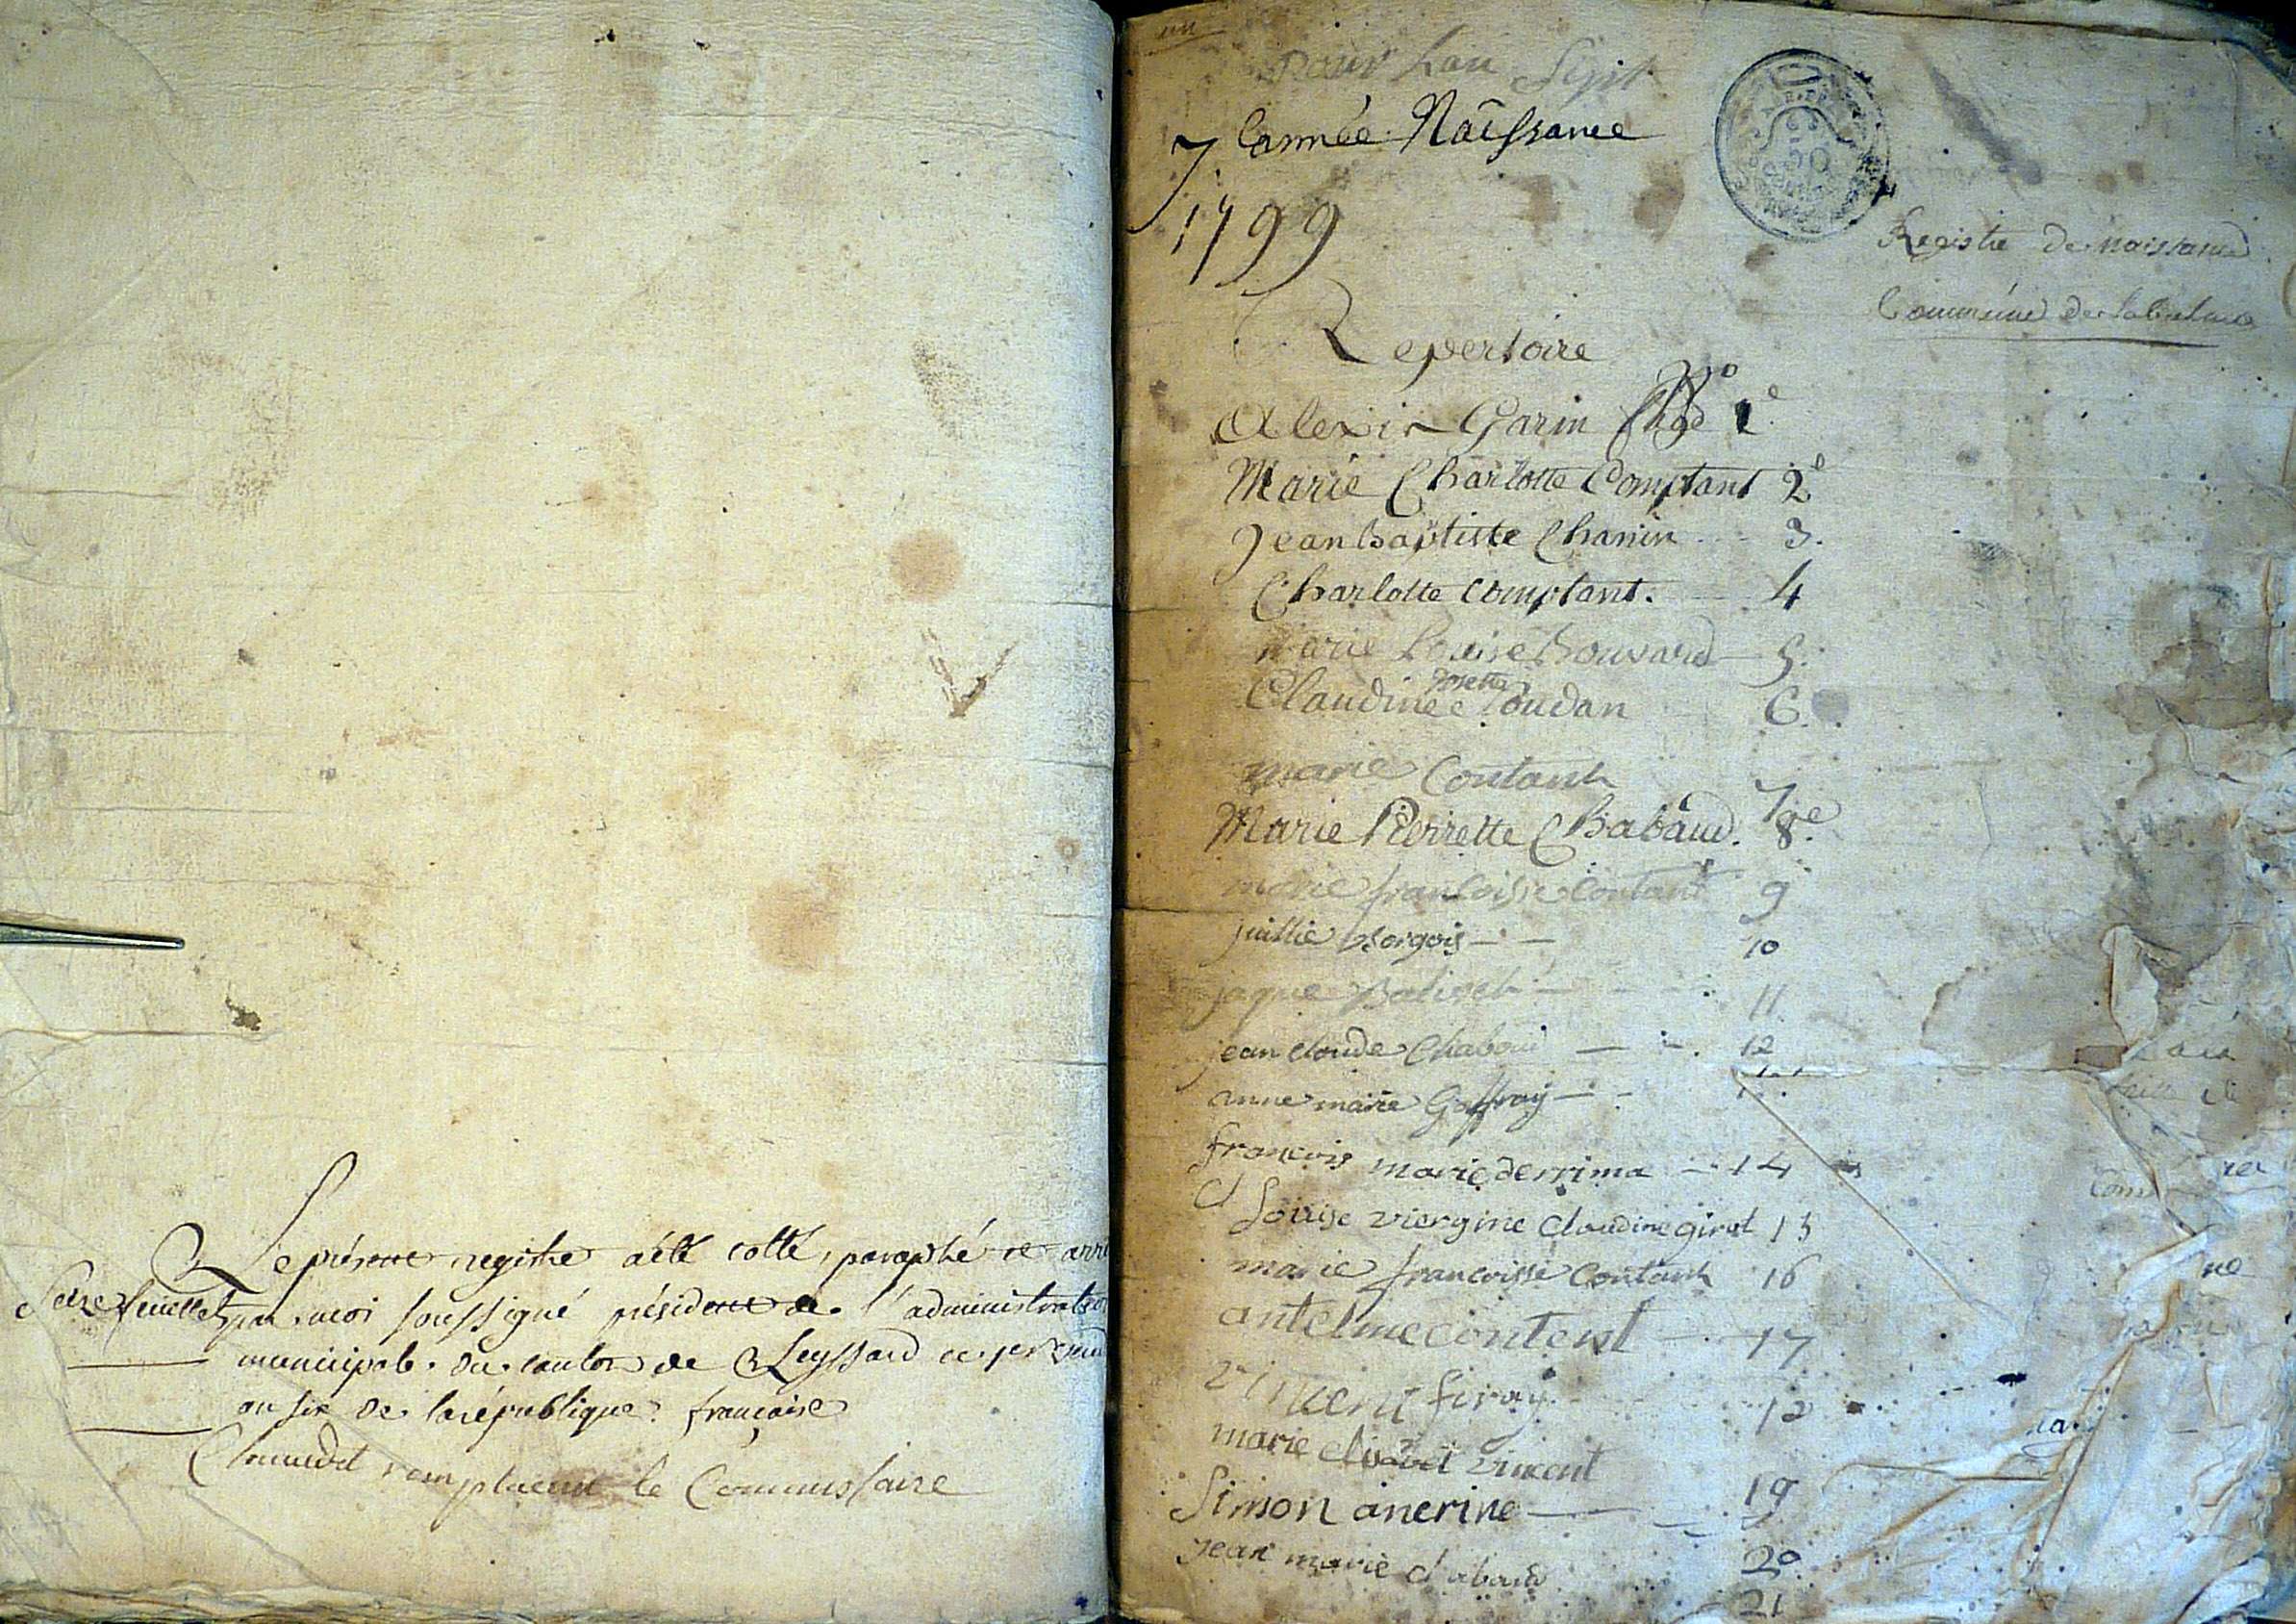 Le présent registre a été cotté, paraphé et
Seize feuillets par moi soussigné président de l'administration
municipale du canton de Leyssard ce
an six de la république française
remplacent le Commissaire
un
pour Lan Sept
7 Lannée Naissance
1799
Registre de naissance
Commune de labalme
Repertoire
Alexis Garin 1e
Marie Charlotte Comptant 2e
Jean Baptiste Chanin 3.
Charlotte Comptant. 4
Marie Louise Bouvard 5.
josette
Claudine Goudan 6.
marie Contant 7
Marie Pierrette Chabaud. 8e
marie francoisse Contant 9
juillie Borgois 10
jaque 11
jean Claude Chaboud 12
anne marie Goffray
francois marie derrima 14
Louise viergine Claudine girot 15
marie francoisse Contant 16
antelme content 17
vincent firay 18
marie vincent 19
Simon anerine 20
jean marie chabaud 21